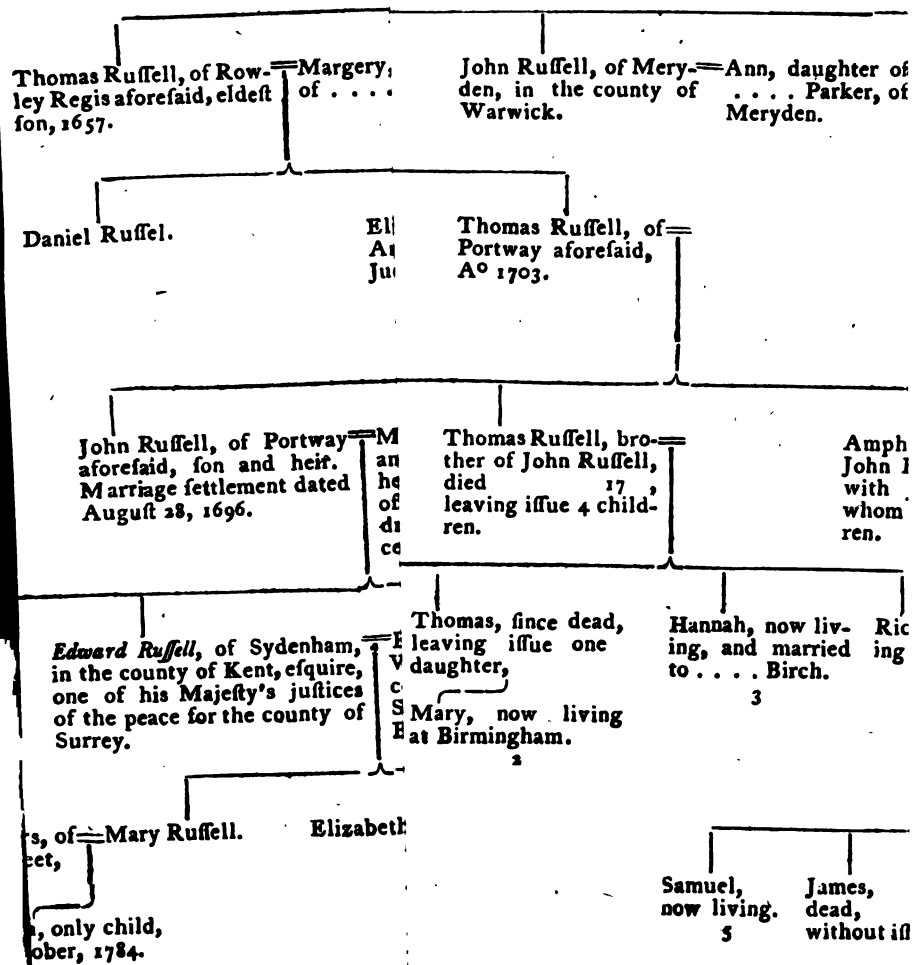 Thomas Ruſſell, of Row-
ley Regis aforeſaid, eldeſt
ſon, 1657.
Margery,
of . . . .
John Ruſſell, of Mery-
den, in the county of
Warwick.
Ann, daughter of
. . . . Parker, of
Meryden.
Daniel Ruſſel.
Thomas Ruſſell, of
Portway aforeſaid,
Aº 1703.
John Ruſſell, of Portway
aforeſaid, ſon and heir.
Marriage ſettlement dated
Auguſt 28, 1696.
Thomas Ruſſell, bro-
ther of John Ruſſell,
died 17 ,
leaving iſſue 4 child-
ren.
Amph
John
with
whom
ren.
Edward Ruſſell, of Sydenham,
in the county of Kent, eſquire,
one of his Majeſty's juſtices
of the peace for the county of
Surrey.
Thomas, ſince dead,
leaving iſſue one
daughter,
Mary, now living
at Birmingham.
2
Hannah, now liv-
ing, and married
to . . . . Birch.
3
Ric
ing
s, of
eet,
Mary Ruſſell.
Elizabeth
, only child,
ober, 1784.
Samuel,
now living.
5
James,
dead,
without iſſ